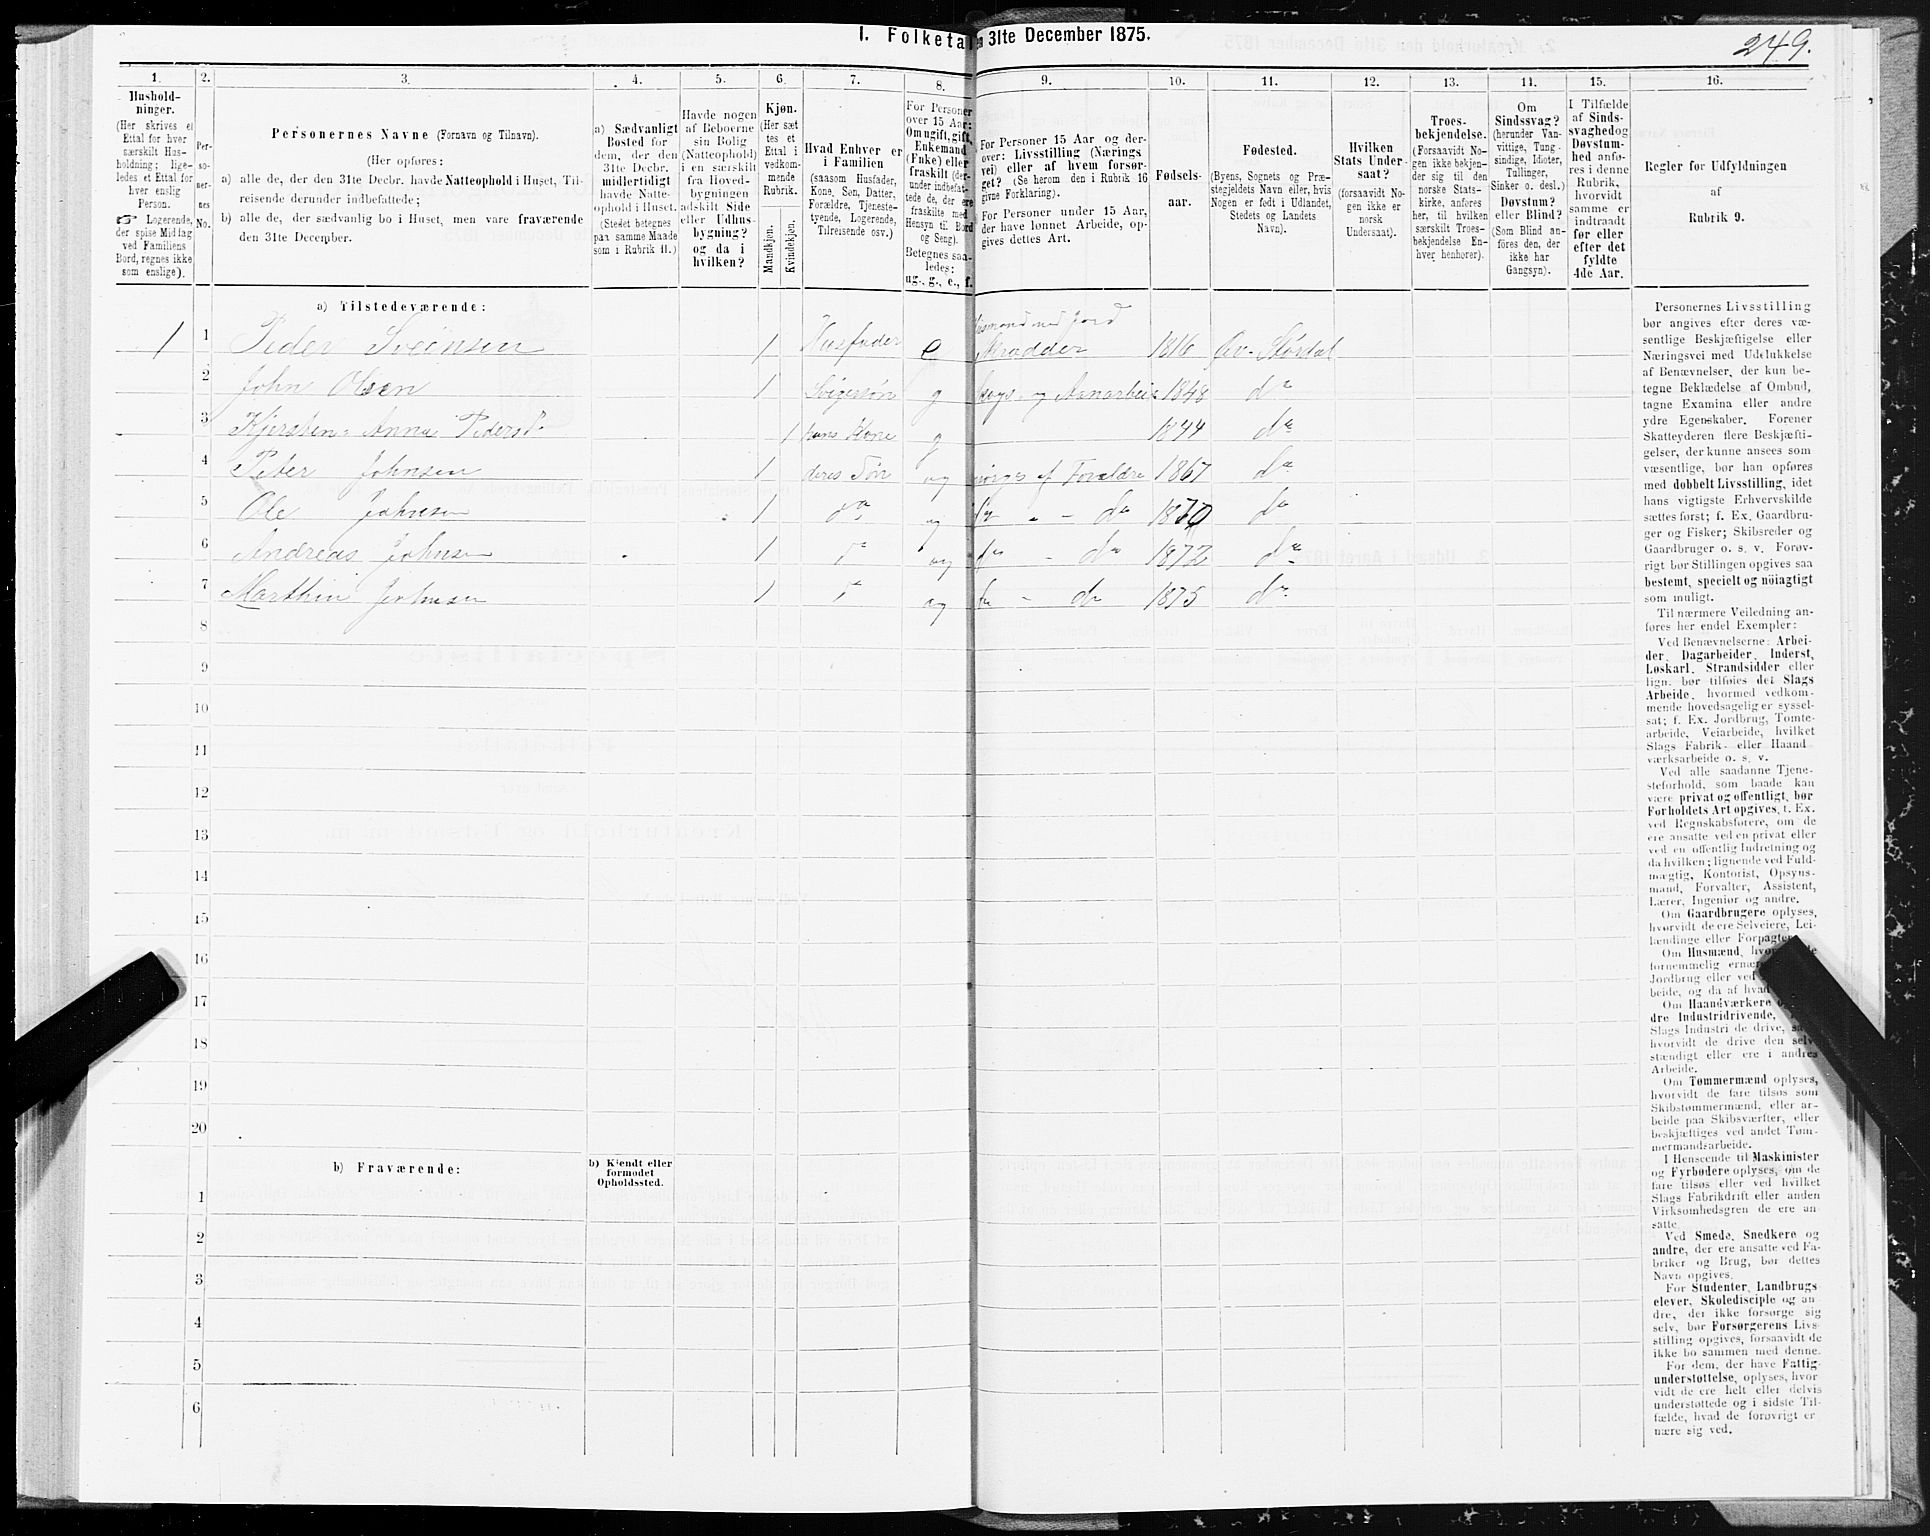 249.
I. Folketal
n 31te December 1875.
1. 2. 3. 4. 5. 6. 7. 8. 9. 10. 11. 12. 13. 14. 15. 16.
Hushold-
ninger.
(Her skrives et
Ettal for hver
særskilt Hus-
holdning; lige-
ledes et Ettal for
hver enslig
Person.
☞ Logerende,
der spise Middag
ved Familiens
Bord, regnes ikke
som enslige).
Per-
so-
ner-
nes
No.
Personernes Navne (Fornavn og Tilnavn).
(Her opføres:
a) alle de, der den 31te Decbr. havde Natteophold i Huset, Til-
reisende derunder indbefattede;
b) alle de, der sædvanlig bo i Huset, men vare fraværende
den 31te December.
a) Sædvanligt
Bosted for
dem, der den
31te Decbr.
midlertidigt
havde Natte-
ophold i Huset.
(Stedet betegnes
paa samme Maade
som i Rubrik 11.)
Havde nogen
af Beboerne
sin Bolig
(Natteophold)
i en særskilt
fra Hoved-
bygningen
adskilt Side
eller Udhus-
bygning?
og da i
hvilken?
Kjøn.
(Her sæt
tes et
Ettal i
vedkom-
mende
Rubrik.
Mandkjøn.
Kvindekjøn.
Hvad Enhver er
i Familien
(saasom Husfader,
Kone, Søn, Datter,
Forældre, Tjeneste-
tyende, Logerende,
Tilreisende osv.)
For Personer
over 15 Aar:
Om ugift, gift,
Enkemand
(Enke) eller
fraskilt (der-
under indbefat-
tede de, der ere
fraskilte med
Hensyn til Bord
og Seng).
Betegnes saa-
ledes:
ug., g., e., f.
For Personer 15 Aar og der-
over: Livsstilling (Nærings
vei) eller af hvem forsør-
get? (Se herom den i Rubrik 16
givne Forklaring).
For Personer under 15 Aar,
der have lønnet Arbeide, op-
gives dettes Art.
Fødsels-
aar.
Fødested.
(Byens, Sognets og Præ-
stegjeldets Navn eller, hvis
Nogen er født i Udlandet,
Stedets og Landets
Navn).
Hvilken
Stats Under-
saat?
(forsaavidt No-
gen ikke er
norsk
Undersaat).
Troes-
bekjendelse.
(Forsaavidt No-
gen ikke bekjen-
der sig til den
norske Stats-
kirke, anføres
her, til hvilken
særskilt Troes-
bekjendelse En-
hver henhører).
Om
Sindssvag?
(herunder Van-
vittige, Tung-
sindige, Idioter,
Tullinger,
Sinker o. desl.)
Døvstum?
eller Blind?
(Som Blind an-
føres den, der
ikke har
Gangsyn).
I Tilfælde
af Sinds-
svaghed og
Døvstum-
hed anfø-
res i denne
Rubrik,
hvorvidt
samme er
indtraadt
før eller
efter det
fyldte
4de Aar.
Regler for Udfyldningen
af
Rubrik 9.
a) Tilstedeværende:
Husmand med Jord
1 1 Peder Svensen 1 Husfader e Skradder 1816 Øv-Størdal
2 John Olsen 1 Svigersøn g Skogs- og Annarbeide 1848 do
3 Kjersten Anna Pedersd. 1 hans Kone g 1844 do
4 Peter Johnsen 1 deres Søn ug sørges af Forældre 1867 do
5 Ole Johnsen 1 do ug do - - do 1870 do
6 Andreas Johnsen 1 do ug do - do 1872 do
7 Marthin Johnsen 1 do ug do - do 1875 do
8
9
10
11
12
13
14
15
16
17
18
19
20
b) Fraværende:
b) Kjendt eller
formodet
Opholdssted.
1
2
3
4
5
6
Personernes Livsstilling
bør angives efter deres væ-
sentlige Beskjæftigelse eller
Næringsvei med Udelukkelse
af Benævnelser, der kun be-
tegne Beklædelse af Ombud,
tagne Examina eller andre
ydre Egenskaber. Forener
Skatteyderen flere Beskjæfti-
gelser, der kunne ansees som
væsentlige, bør han opføres
med dobbelt Livsstilling, idet
hans vigtigste Erhvervskilde
sættes først; f. Ex. Gaardbru-
ger og Fisker; Skibsreder og
Gaardbruger o. s. v. Forøv-
rigt bør Stillingen opgives saa
bestemt, specielt og nöiagtigt
som muligt.
Til nærmere Veiledning an-
føres her endel Exempler:
Ved Benævnelserne: Arbei-
der, Dagarbeider, Inderst,
Løskarl, Strandsidder eller
lign. bør tilføies det Slags
Arbeide, hvormed vedkom-
mende hovedsagelig er syssel-
sat; f. Ex. Jordbrug, Tomte-
arbeide, Veiarbeide, hvilket
Slags Fabrik- eller Haand
værksarbeide o. s. v.
Ved alle saadanne Tjene-
steforhold, som baade kan
være privat og offentligt, bør
Forholdets Art opgives, f. Ex.
ved Regnskabsførere, om de
ere ansatte ved en privat eller
ved en offentlig Indretning og
da hvilken; lignende ved Fuld-
mægtig, Kontorist, Opsyns-
mand, Forvalter, Assistent,
Lærer, Ingeniør og andre.
Om Gaardbrugere oplyses,
hvorvidt de ere Selveiere, Lei-
lændinge eller Forpagtere
Om Husmænd,
fornemmelig
Jordbrug eller ved
beide, og da af hvad
Om Haandværkere
dre Industridrivende,
Slags Industri de drive,
hvorvidt de drive den selv-
stændigt eller ere i andres
Arbeide.
Om Tømmermænd oplyses,
hvorvidt de fare tilsøs som
Skibstømmermænd, eller ar-
beide paa Skibsværfter, eller
beskjæftiges ved andet Tøm-
mermandsarbeide.
I Henseende til Maskinister
og Fyrbødere oplyses, om de
fare tilsøs eller ved hvilket
Slags Fabrikdrift eller anden
Virksomhedsgren de ere an-
satte.
Ved Smede, Snedkere og
andre, der ere ansatte ved Fa-
briker og Brug, bør dettes
Navn opgives.
For Studenter, Landbrugs
elever, Skoledisciple og an-
dre, der ikke forsørge sig
selv, bør Forsørgerens Livs-
stilling opgives, forsaavidt de
ikke bo sammen med denne.
For dem, der have Fattig-
understøttelse, oplyses, hvor-
vidt de ere helt eller delvis
understøttede og i sidste Til-
fælde, hvad de forøvrigt er
nære sig ved.